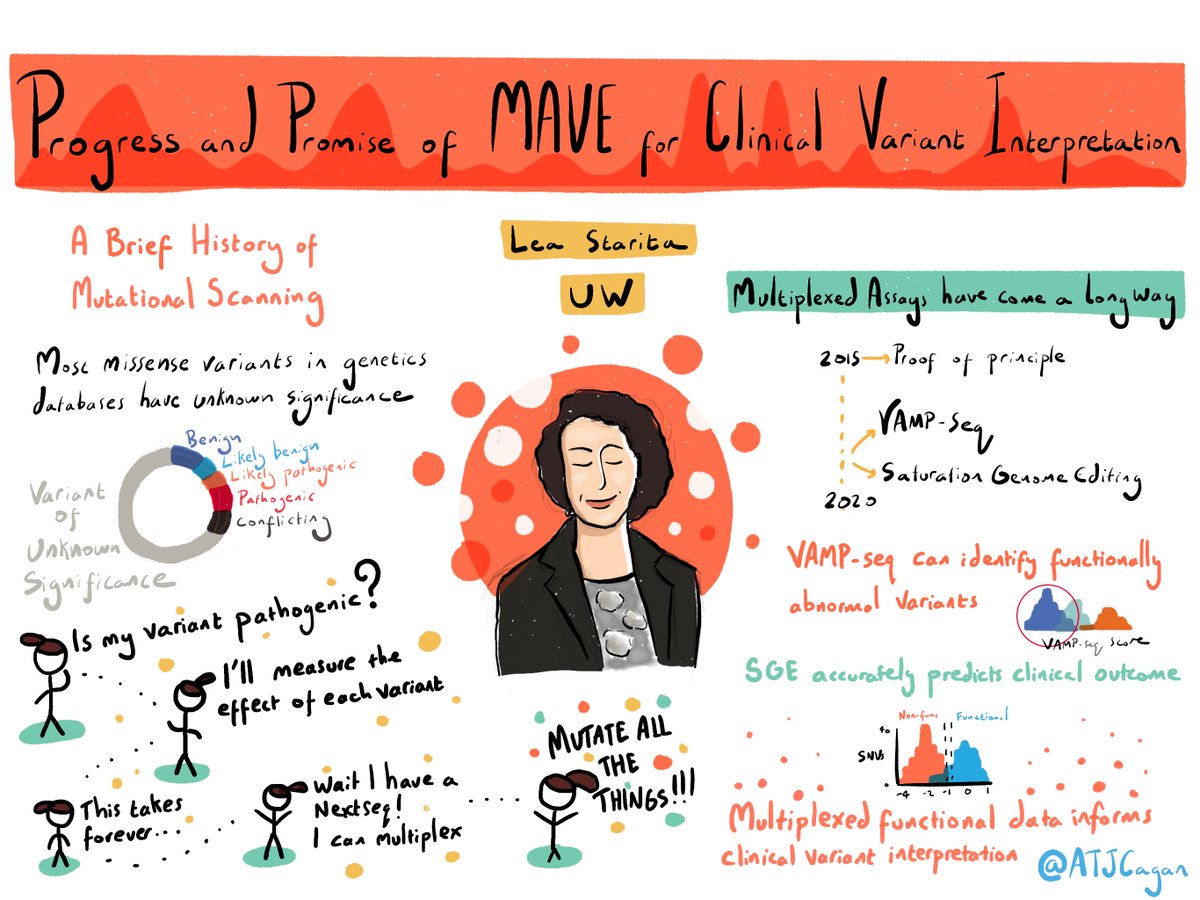 Progress and Promise of MAVE for Clinical Variant Interpretation
A Brief History of
Mutational Scanning
Most missense variants in genetics
databases have unknown significance
Benign
Likely benign
Likely pathogenic
Pathogenic
Conflicting
Variant
of
Unknown
Significance
Is my variant pathogenic?
I'll measure the
effect of each variant
This takes
forever...
Wait I have a
Nextseq!
I can multiplex
MUTATE ALL
THE
THINGS!!!
Lea Starita
UW
Multiplexed Assays have come a long way
2015 → Proof of principle
VAMP-Seq
Saturation Genome Editing
2020
VAMP-seq can identify functionally
abnormal variants
VAMP-seq score
SGE accurately predicts clinical outcome
Non-func
Functional
40
SNVs
0
-4 -2 -1 0 1
Multiplexed functional data informs
clinical variant interpretation
@ATJCagan